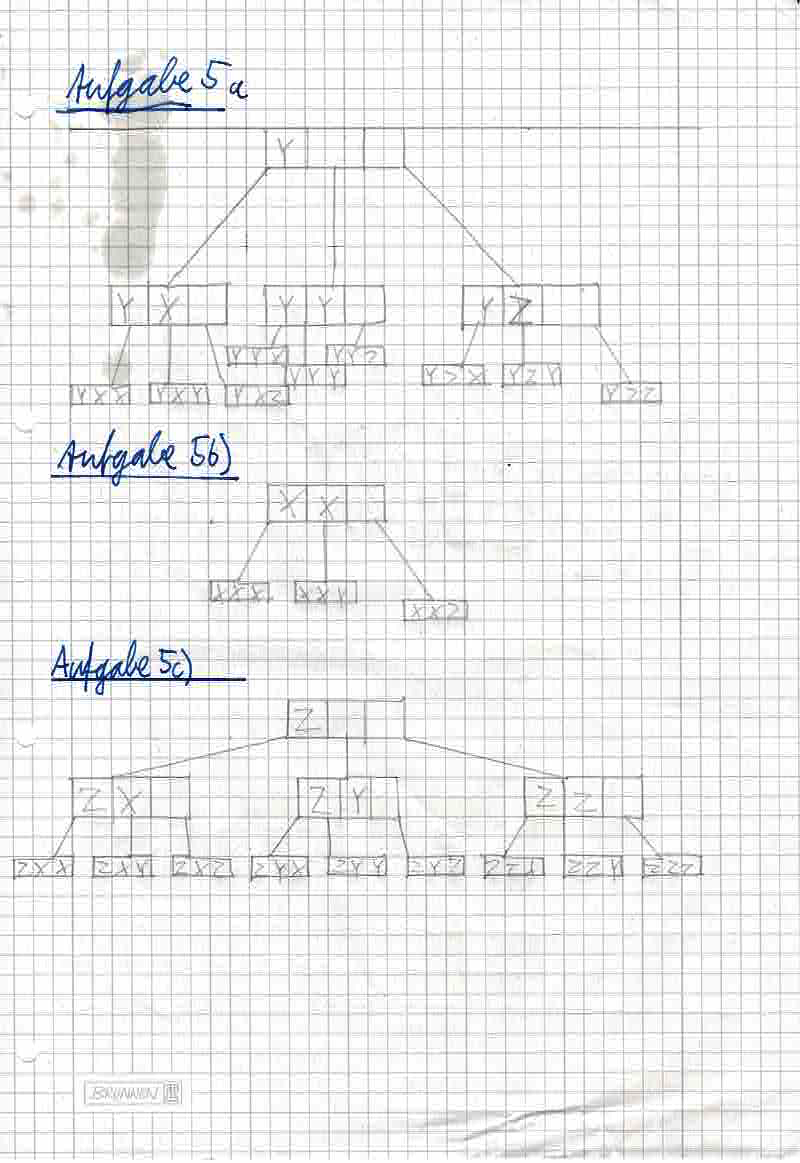 Aufgabe 5a
Y
Y X Y Y Y Z
YYX YYZ
YYY YZX YZY
YXX YXY YXZ YZZ
Aufgabe 5b)
X X
XXX XXY
XXZ
Aufgabe 5c)
Z
Z X Z Y Z Z
ZXX ZXY ZXZ ZYX ZYY ZYZ ZZY ZZZ
BRUNNEN